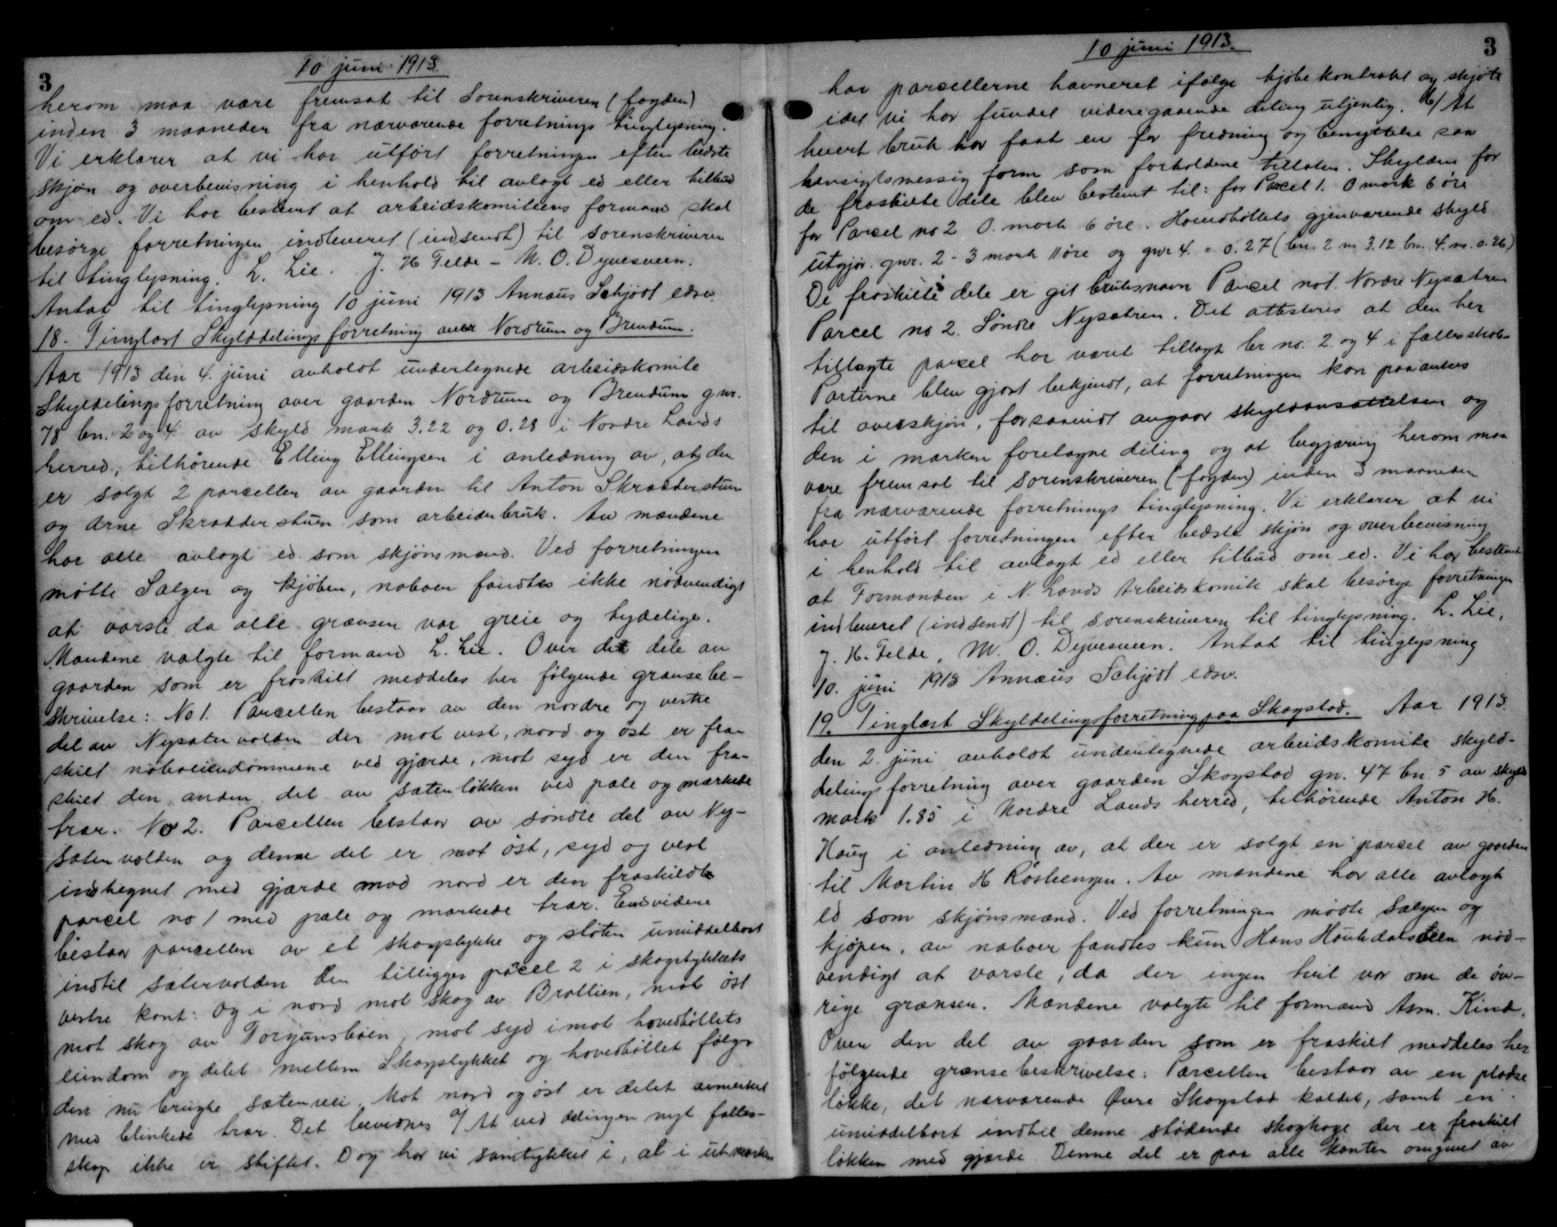 3
10 juni 1913.
herom maa være fremsat til Sorenskriveren (fogden)
inden 3 maaneder fra nærværende forretnings tinglysning.
Vi erklærer at vi har utført forretningen efter bedste
skjøn og overbevisning i henhold til avlagt ed eller tilbud
om ed. Vi har bestemt at arbeidskomiteens formand skal
besørge forretningen indleveret (indsendt) til sorenskriveren
til tinglysning. L. Lie. J. H Felde - M. O. Dyvesveen.
Antat til tinglysning 10 juni 1913 Annæus Schjødt edsv.
18. Tinglæst Skylddelingsforretning over Nordrum og Brendum.
Aar 1913 den 4. juni avholdt undertegnede arbeidskomite
Skyldelingsforretning over gaarden Nordrum og Brendum gnr.
78 bn. 2 og 4 av skyld mark 3.22 og 0.28 i Nordre Lands
herred, tilhørende Elling Ellingsen i anledning av, at der
er solgt 2 parceller av gaarden til Anton Skrædderstuen
og Arne Skrædderstuen som arbeiderbruk. Av mændene
har alle avlagt ed som skjønsmænd. Ved forretningen
møtte Sælger og kjøber, naboer fandtes ikke nødvendigt
at varsle, da alle grænser var greie og tydelige.
Mændene valgte til formand L. Lie. Over det dele av
gaarden som er fraskilt meddeles her følgende grænsebe-
skrivelse: No 1. Parcellen bestaar av den nordre og vestre
del av Nysætervolden der mot vest, nord og øst er fra-
skilt naboeiendommene ved gjærde, mot syd er den fra-
skilt den anden del av sæterløkken ved pæle og mærkede
trær. No 2. Parcellen bestaar av søndre del av Ny-
sætervolden og denne del er mot øst, syd og vest
indhegnet med gjærde mod nord er den fraskildte
parcel no 1 med pæle og mærkede trær. Endvidere
bestaar parcellen av et skogstykke og støter umiddelbart
indtil sætervolden den tilligger parcel 2 i skogstykkets
vestre kant. Og i nord mot skog av Brattlien, mot øst
mot skog av Torgunsløien, mot syd imot hovedbøllets
eiendom og delet mellem Skogstykket og hovedbøllet følger
den nu brugte sæterveie. Mot nord og øst er delet avmerket
med blinkede trær. Det bevidnes a/ At ved delingen nyt fælles-
skap ikke er stiftet. Dog har vi samtykket i, at i utmarken
3
10 juni 1913.
har parcellerne havneret ifølge kjøbekontrakt og skjøte
idet vi har fundet videregaaende deling utjenlig. b/ At
hvert bruk har faat en for fredning og benyttelse saa
hensigtsmessig form som forholdene tillater. Skylden for
de fraskilte dele blev bestemt til: for Parcel 1. 0 mark 6 øre
for Parcel no 2 0. mark 6 øre. Hovedbøllets gjenværende skyld
utgjør. gnr. 2 - 3 mark 11 øre og gnr 4. = 0.27 (bn. 2 m 3.12 bn. 4. m. 0.26)
De fraskilte dele er git bruksnavn Parcel no 1. Nordre Nysætren
Parcel no 2. Søndre Nysætren. Det attesteres at den her
tillagte parcel har været tillagt br no. 2 og 4 i fællesskab.
Parterne blev gjort bekjendt, at forretningen kan paaankes
til overskjøn, forsaavidt angaar skyldansættelsen og
den i marken foretagne deling og at begjæring herom maa
være fremsat til sorenskriveren (fogden) inden 3 maaneder
fra nærværende forretnings tinglysning. Vi erklærer at vi
har utført forretningen efter bedste skjøn og overbevisning
i henhold til avlagt ed eller tilbud om ed. Vi har bestemt
at Formanden i N. Lands Arbeidskomite skal besørge forretningen
indleveret (indsendt) til sorenskriveren til tinglysning. L. Lie,
J. H. Felde, M. O. Dyvesveen. Antat til tinglysning
10. juni 1913 Annæus Schjødt edsv.
19. Tinglæst Skyldelingsforretning paa Skogstad. Aar 1913
den 2. juni avholdt undertegnede arbeidskomite skyld-
delingsforretning over gaarden Skogstad gn. 47 bn. 5 av skyld
mark 1.85 i Nordre Lands herred, tilhørende Anton H.
Haug i anledning av, at der er solgt en parcel av gaarden
til Martin H Røstengen. Av mændene har alle avlagt
ed som skjønsmænd. Ved forretningen mødte Sælger og
kjøper, av naboer fandtes kun Hans nød-
vendigt at varsle, da der ingen tvil var om de øv-
rige grænser. Mændene valgte til formand Asm. Kind.
Over den del av gaarden som er fraskilt meddeles her
følgende grænsebeskrivelse: Parcellen bestaar av en pladse
løkke, det nærværende Øvre Skogstad kaldet, samt en
umiddelbart indtil denne stødende skoghage der er fraskilt
løkken med gjærde. Denne del er paa alle kanter omgivet av